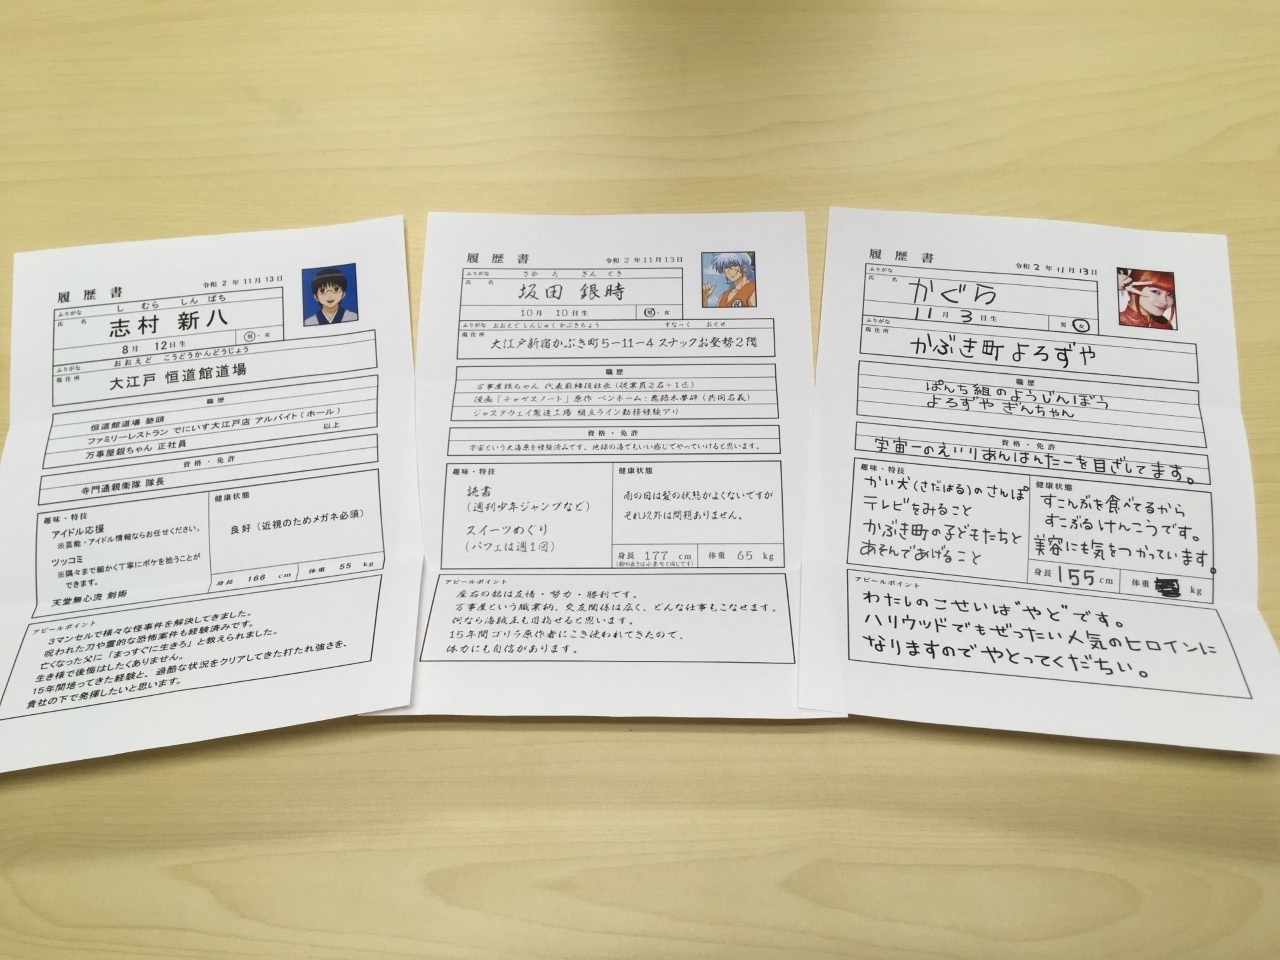 履歴書
令和 2 年 11月 13日
ふりがな
し むら しん ぱち
氏 名
志村 新八
8月 12日生
男・女
ふりがな
おおえど こうどうかんどうじょう
現住所
大江戸 恒道館道場
職歴
恒道館道場 塾頭
ファミリーレストラン でにいす大江戸店 アルバイト(ホール)
万事屋銀ちゃん 正社員
以上
資格・免許
寺門通親衛隊 隊長
趣味・特技
アイドル応援
※芸能・アイドル情報ならお任せください。
ツッコミ
※隅々まで細かく丁寧にボケを拾うことが
できます。
天堂無心流 剣術
健康状態
良好(近視のためメガネ必須)
身長 166 cm
体重 55 kg
アピールポイント
3マンセルで様々な怪事件を解決してきました。
呪われた刀や霊的な恐怖案件も経験済みです。
亡くなった父に「まっすぐに生きろ」と教えられました。
生き様で後悔はしたくありません。
15年間培ってきた経験と、過酷な状況をクリアしてきた打たれ強さを、
貴社の下で発揮したいと思います。
履歴書
令和 2 年 11月 13日
ふりがな
さか た ぎん とき
氏 名
坂田 銀時
10月 10日生
男・女
ふりがな
おおえど しんじゅく かぶきちょう すなっく おとせ
現住所
大江戸新宿かぶき町5-11-4 スナックお登勢2階
職歴
万事屋銀ちゃん 代表取締役社長(従業員2名+1匹)
漫画「チャゲスノート」原作 ペンネーム:(共同名義)
ジャスタウェイ製造工場 組立ライン勤務経験アリ
資格・免許
宇宙という大海原を経験済みです。地球の海でもいい感じでやっていけると思います。
趣味・特技
読書
(週刊少年ジャンプなど)
スイーツめぐり
(パフェは週1回)
健康状態
雨の日は髪の状態がよくないですが
それ以外は問題ありません。
身長 177 cm
体重 65 kg
アピールポイント
座右の銘は友情・努力・勝利です。
万事屋という職業柄、交友関係は広く、どんな仕事もこなせます。
何なら海賊王も目指せると思います。
15年間ゴリラ原作者にこき使われてきたので、
体力にも自信があります。
履歴書
令和 2 年 11月 13日
ふりがな
氏 名
かぐら
11月 3日生
男・女
ふりがな
現住所
かぶき町 よろずや
職歴
ぱんち組のようじんぼう
よろずや ぎんちゃん
資格・免許
宇宙一のえいりあんはんたーを目ざしてます。
趣味・特技
かい犬(さだはる)のさんぽ
テレビをみること
かぶき町の子どもたちと
あそんであげること
健康状態
すこんぶを食べてるから
すこぶるけんこうです。
美容にも気をつかっています。
身長 155 cm
体重 kg
アピールポイント
わたしのこせいは"やど"です。
ハリウッドでもぜったい人気のヒロインに
なりますのでやとってくだちい。